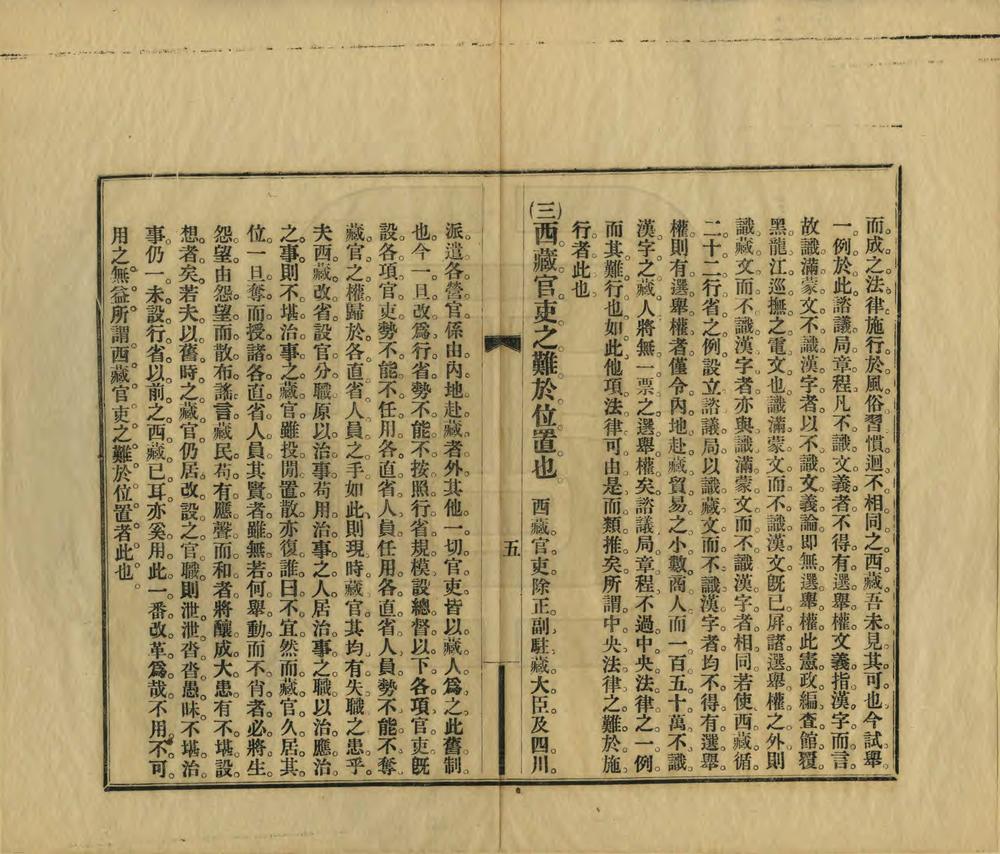 而成之法律施行於風俗習慣迥不相同之西藏吾未見其可也今試舉
一例於此諮議局章程凡不識文義者不得有選舉權文義指漢字而言
故識滿蒙文不識漢字者以不識文義論即無選舉權此憲政編查館覆
黑龍江巡撫之電文也識滿蒙文而不識漢文既已屏諸選舉權之外則
識藏文而不識漢字者亦與識滿蒙文而不識漢字者相同若使西藏循
二十二行省之例設立諮議局以識藏文而不識漢字者均不得有選舉
權則有選舉權者僅令內地赴藏貿易之小數商人而一百五十萬不識
漢字之藏人將無一票之選舉權矣諮議局章程不過中央法律之一例
而其難行也如此他項法律可由是而類推矣所謂中央法律之難於施
行者此也
(三)西藏官吏之難於位置也 西藏官吏除正副駐藏大臣及四川
五
派遣各營官係由內地赴藏者外其他一切官吏皆以藏人為之此舊制
也今一旦改為行省勢不能不按照行省規模設總督以下各項官吏既
設各項官吏勢不能不任用各直省人員任用各直省人員勢不能不奪
藏官之權歸於各直省人員之手如此則現時藏官其均有失職之患乎
夫西藏改省設官分職原以治事苟用治事之人居治事之職以治應治
之事則不堪治事之藏官雖投閒置散亦復誰曰不宜然而藏官久居其
位一旦奪而授諸各直省人員其賢者雖無若何舉動而不肖者必將生
怨望由怨望而散布謠言藏民苟有應聲而和者將釀成大患有不堪設
想者矣若夫以舊時之藏官仍居改設之官職則泄泄沓沓愚昧不堪治
事仍一未設行省以前之西藏已耳亦奚用此一番改革為哉不用不可
用之無益所謂西藏官吏之難於位置者此也